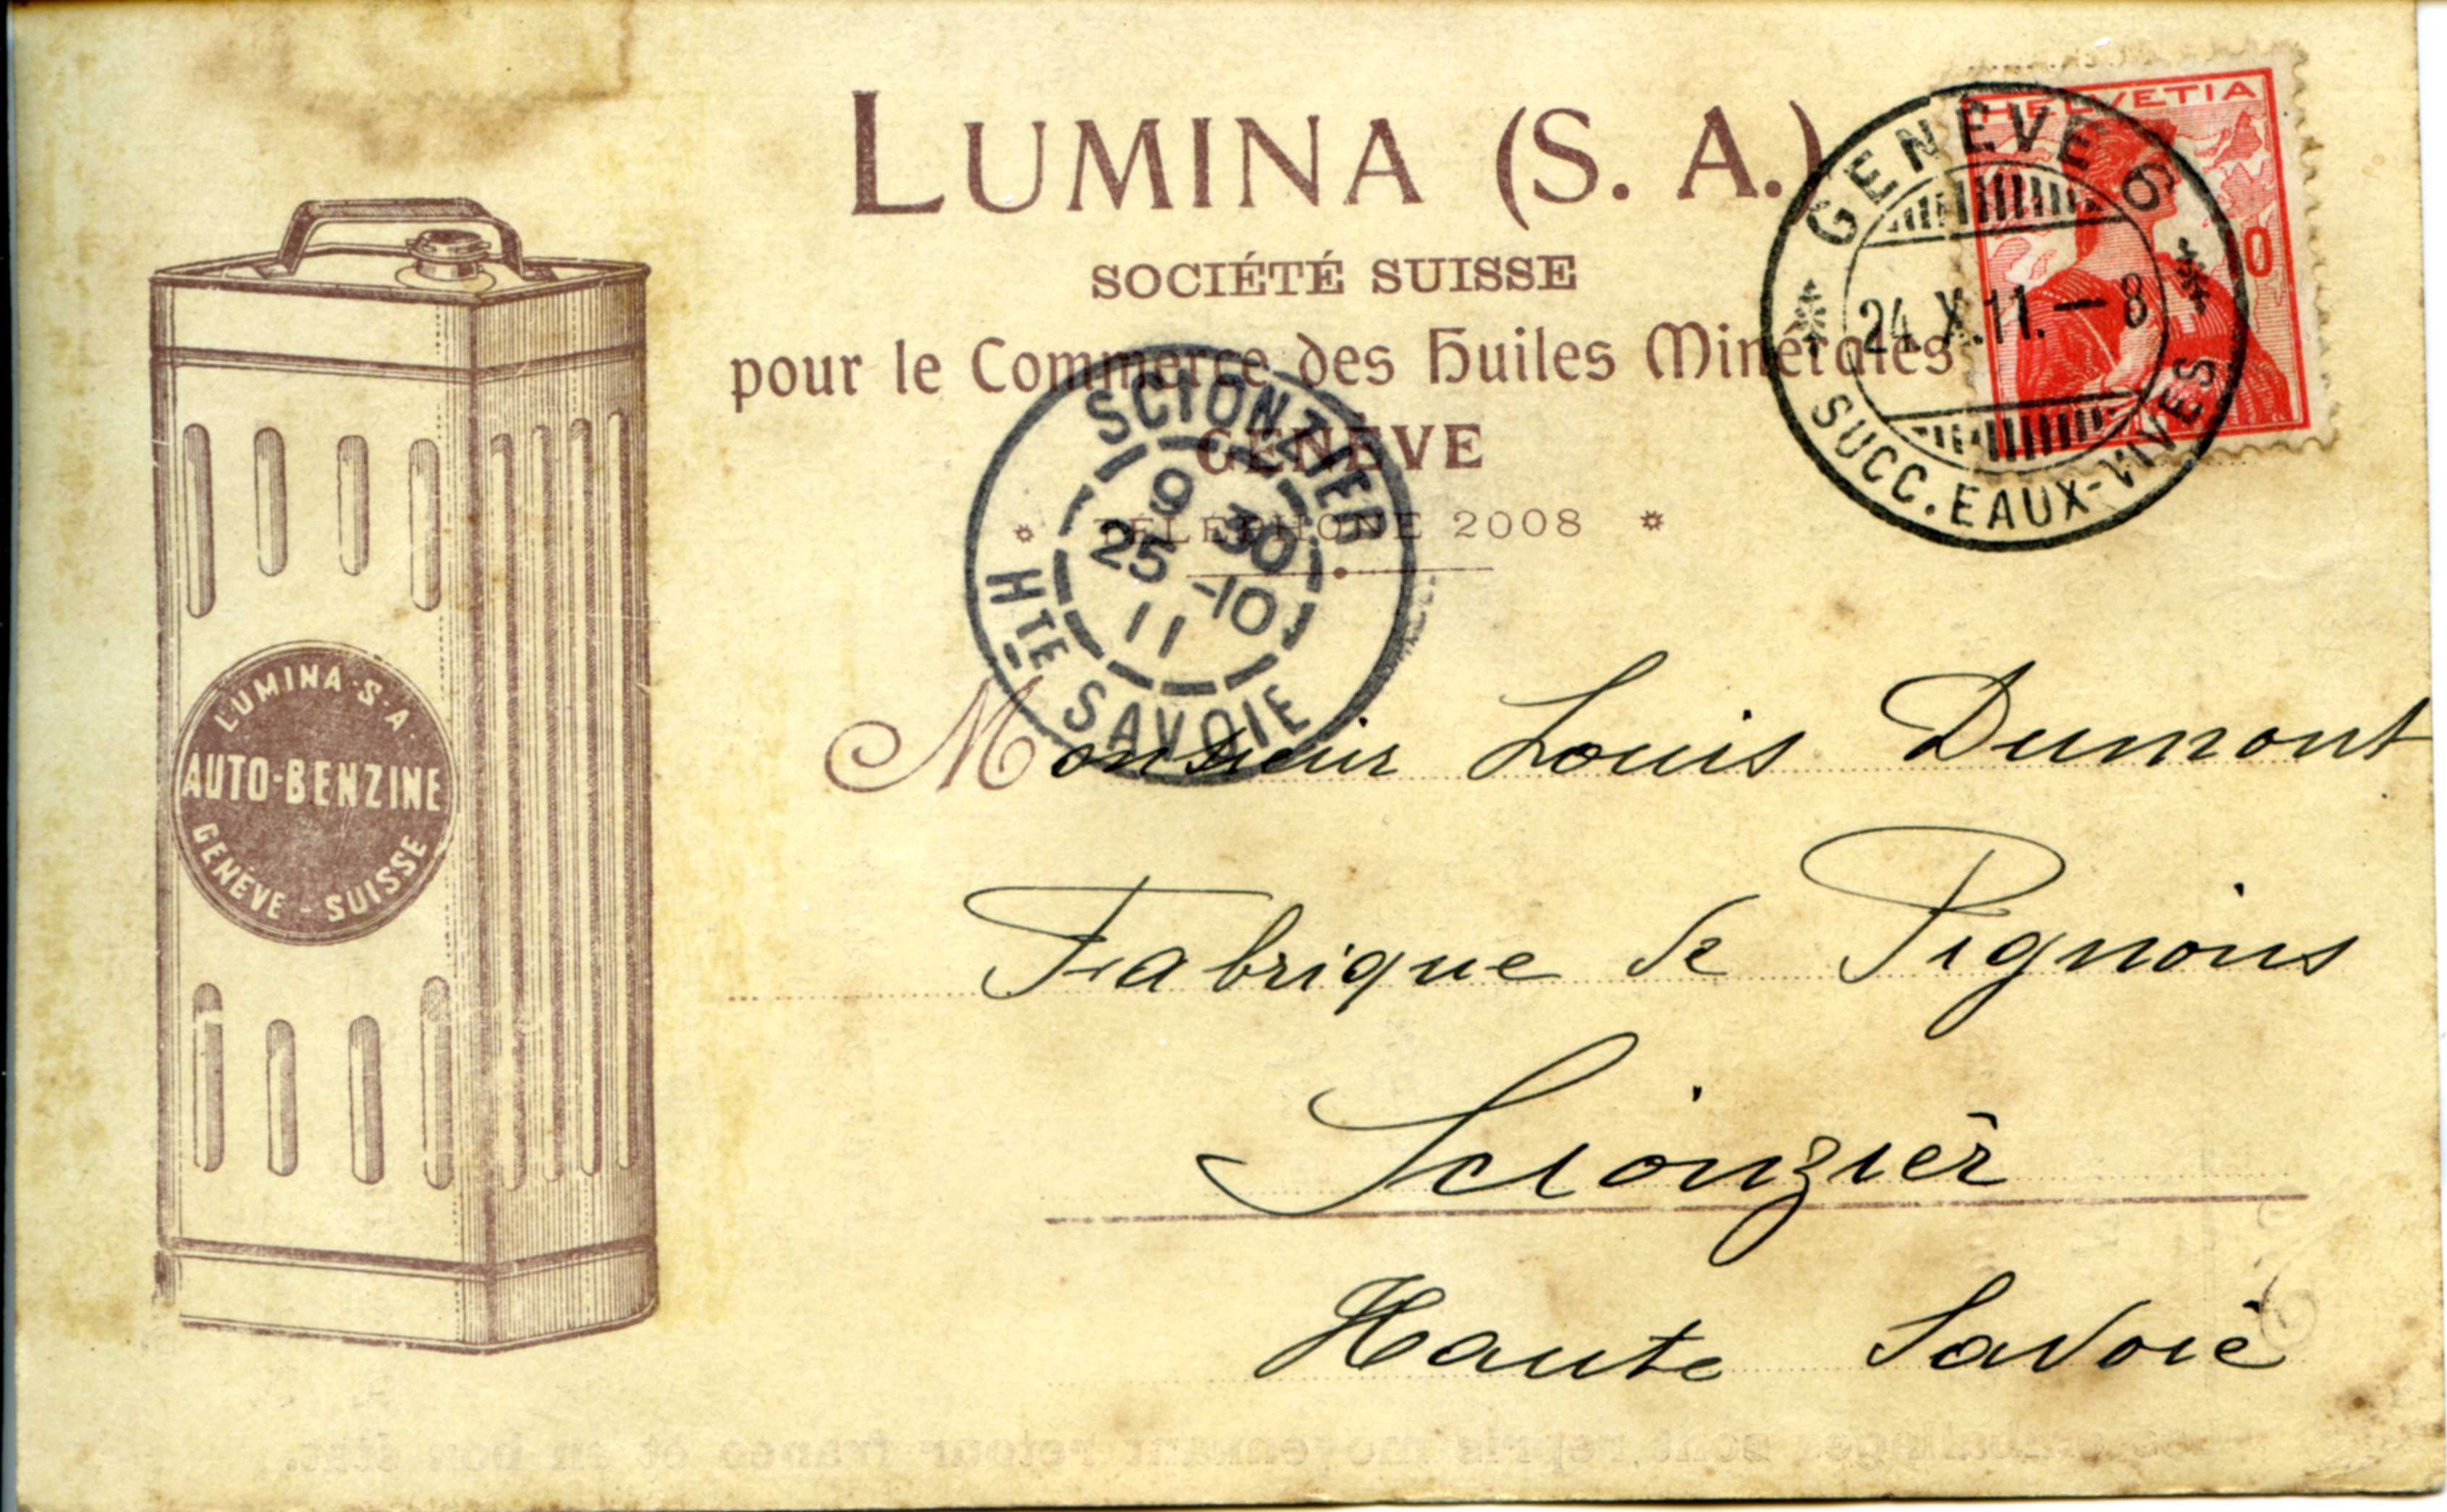 LUMINA (S. A.)
SOCIÉTÉ SUISSE
pour le Commerce des Huiles Minérales
GENÈVE
* TÉLÉPHONE 2008 *
HELVETIA
GENÈVE 6
24.X.11.—8
SUCC. EAUX-VIVES
SCIONZIER
9 30
25 -10
11
HTE SAVOIE
LUMINA·S·A.
AUTO-BENZINE
GENÈVE - SUISSE
Monsieur Louis Dumont
Fabrique de Pignons
Scionzier
Haute Savoie
emballages sont repris moyennant retour franco et en bon état.